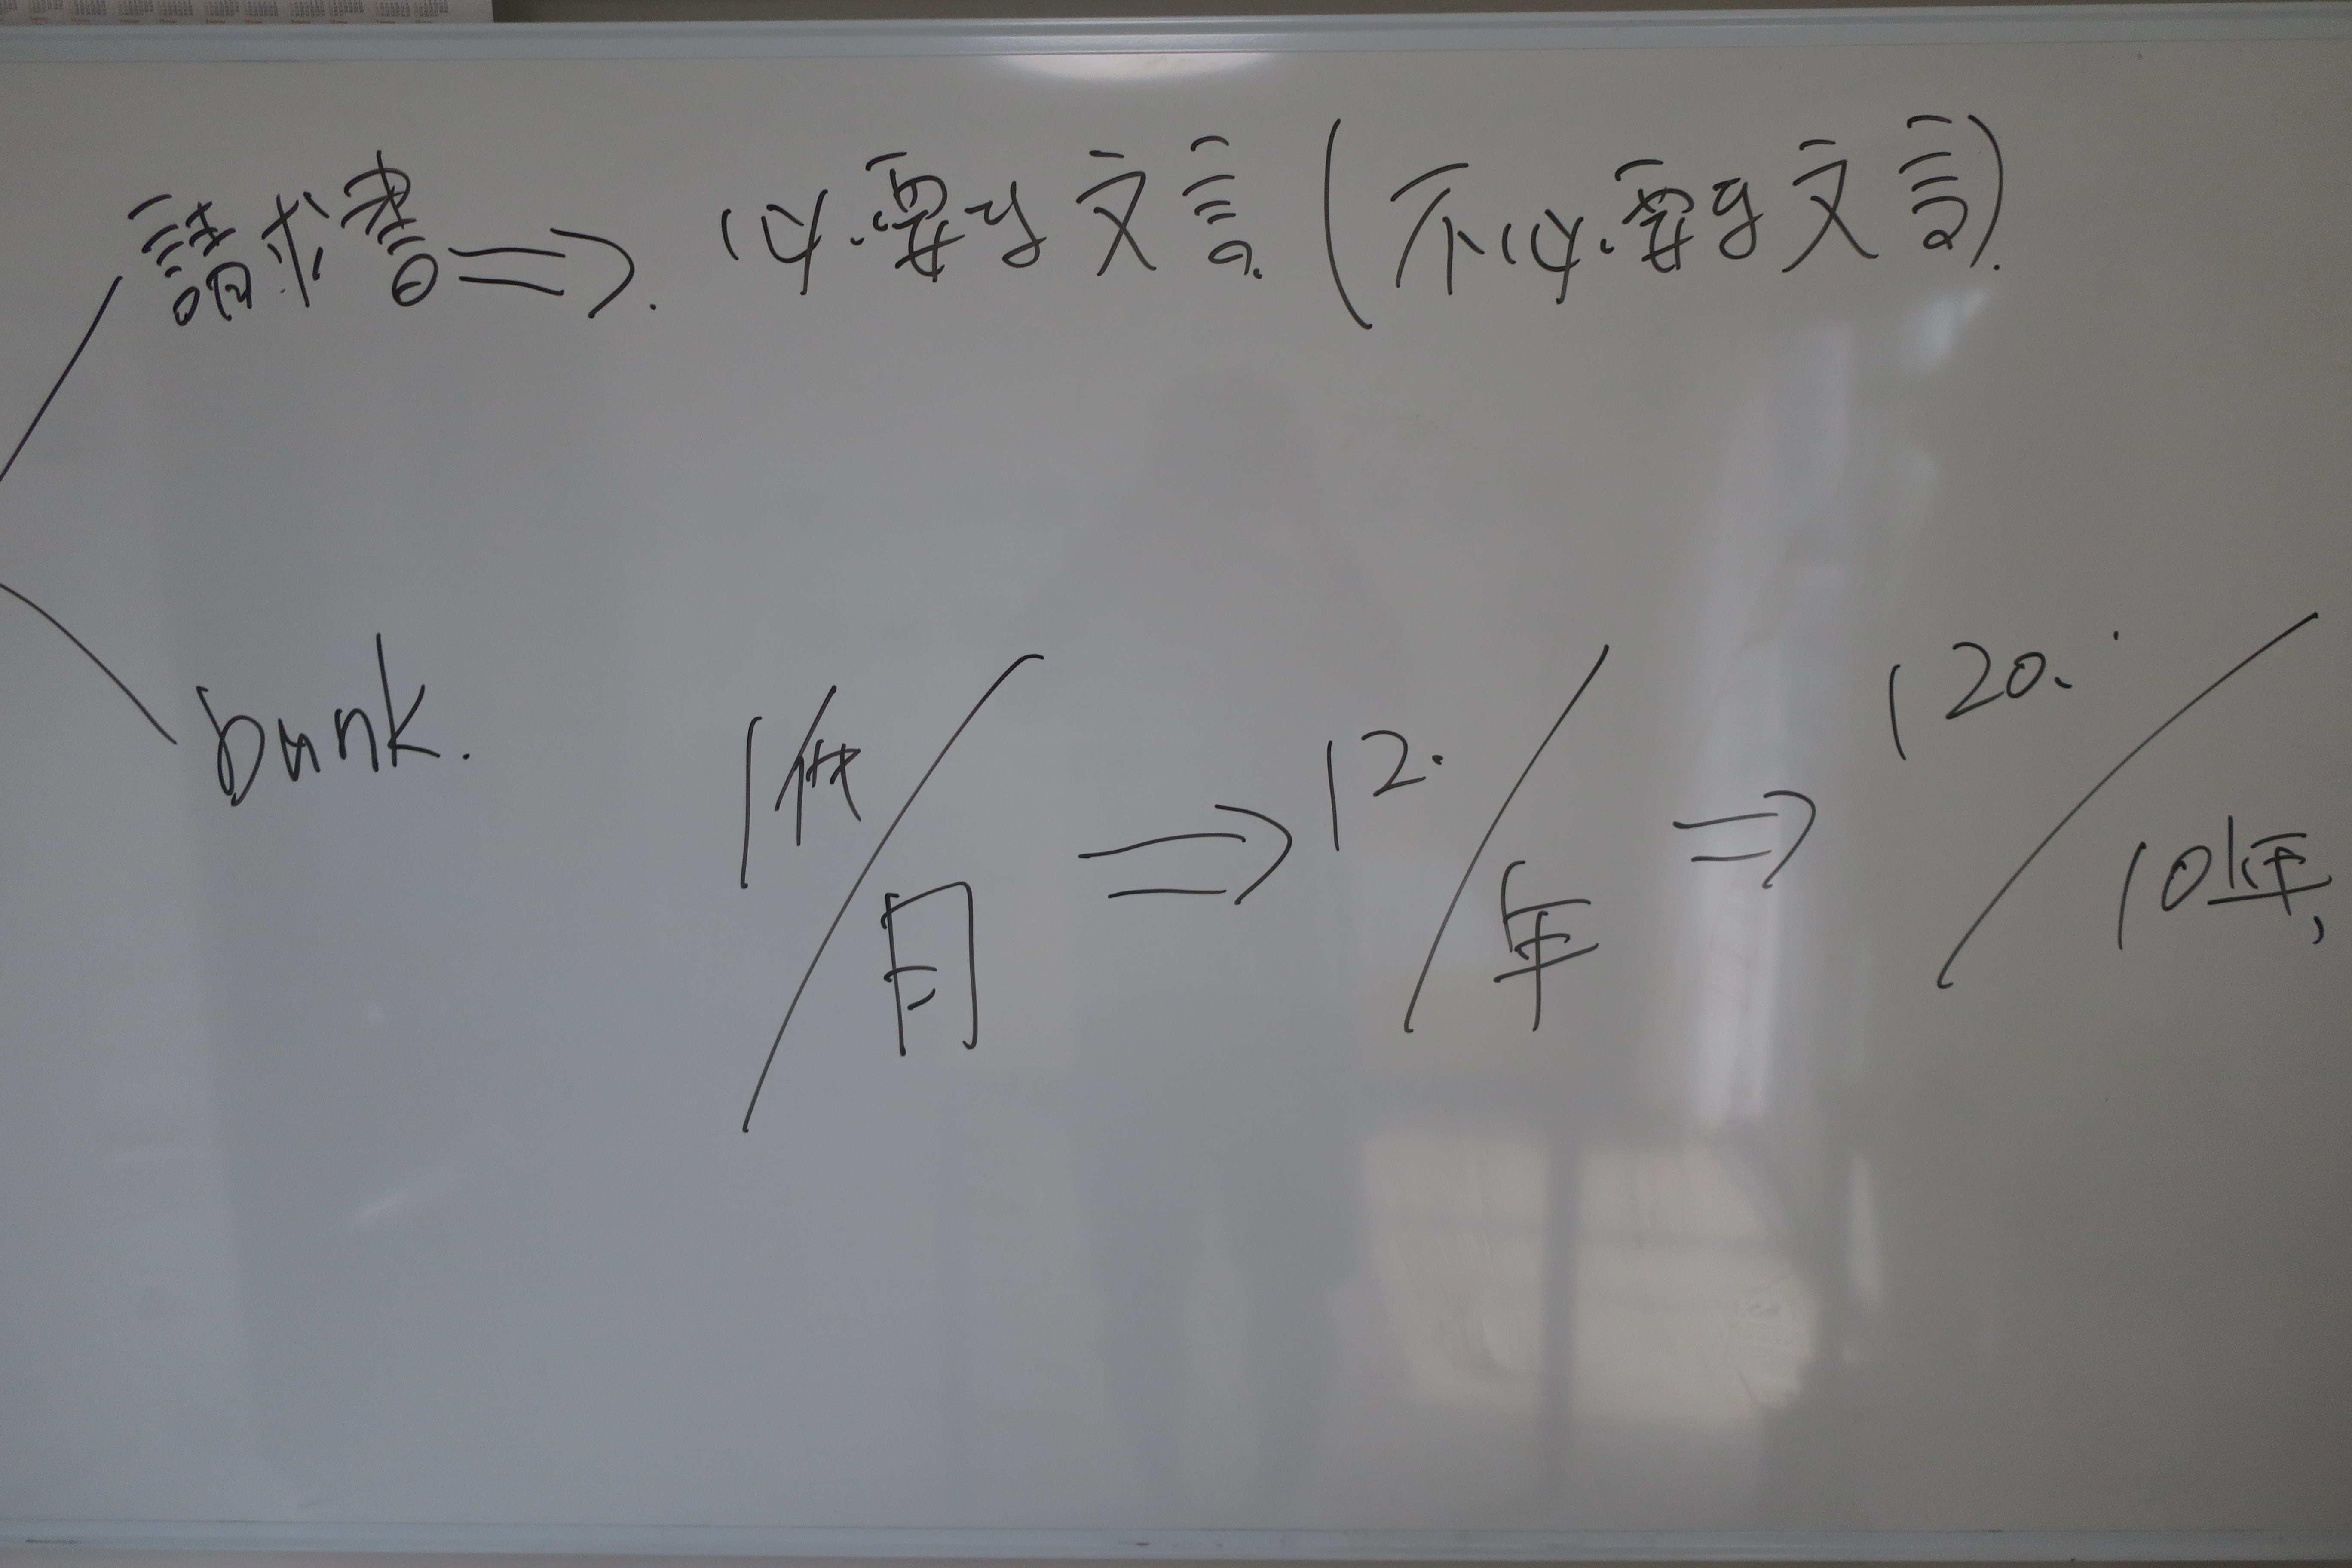 請求書 ⇒ 必要な文言 (不必要な文言)
bank. 1件/月 ⇒ 12/年 ⇒ 120/10年